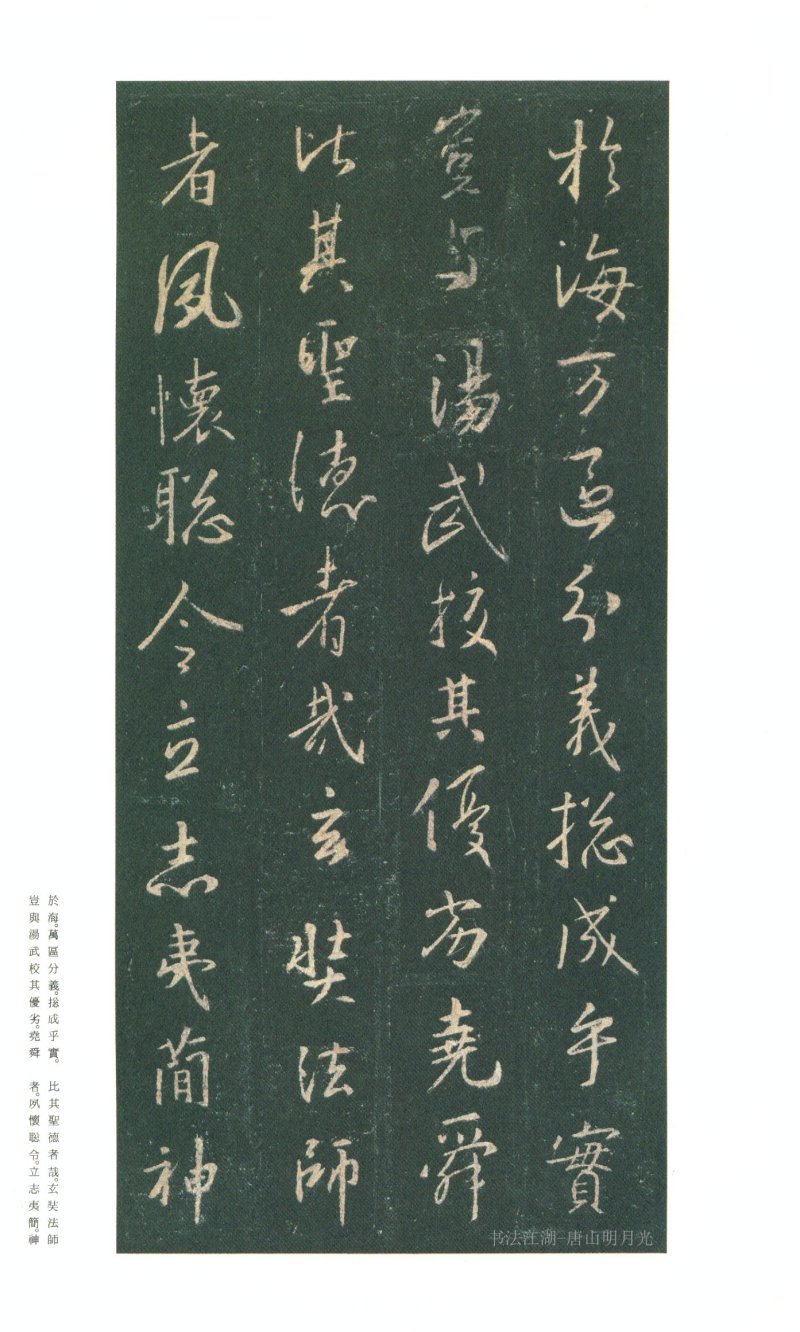 於海万區分義揔成乎實
豈与湯武挍其優劣堯舜
比其聖德者哉玄奘法師
者夙懷聡令立志夷簡神
於海。萬區分義。揔成乎實。
豈與湯武校其優劣。堯舜
比其聖德者哉。玄奘法師
者。夙懷聡令。立志夷簡。神
书法江湖-唐山明月光